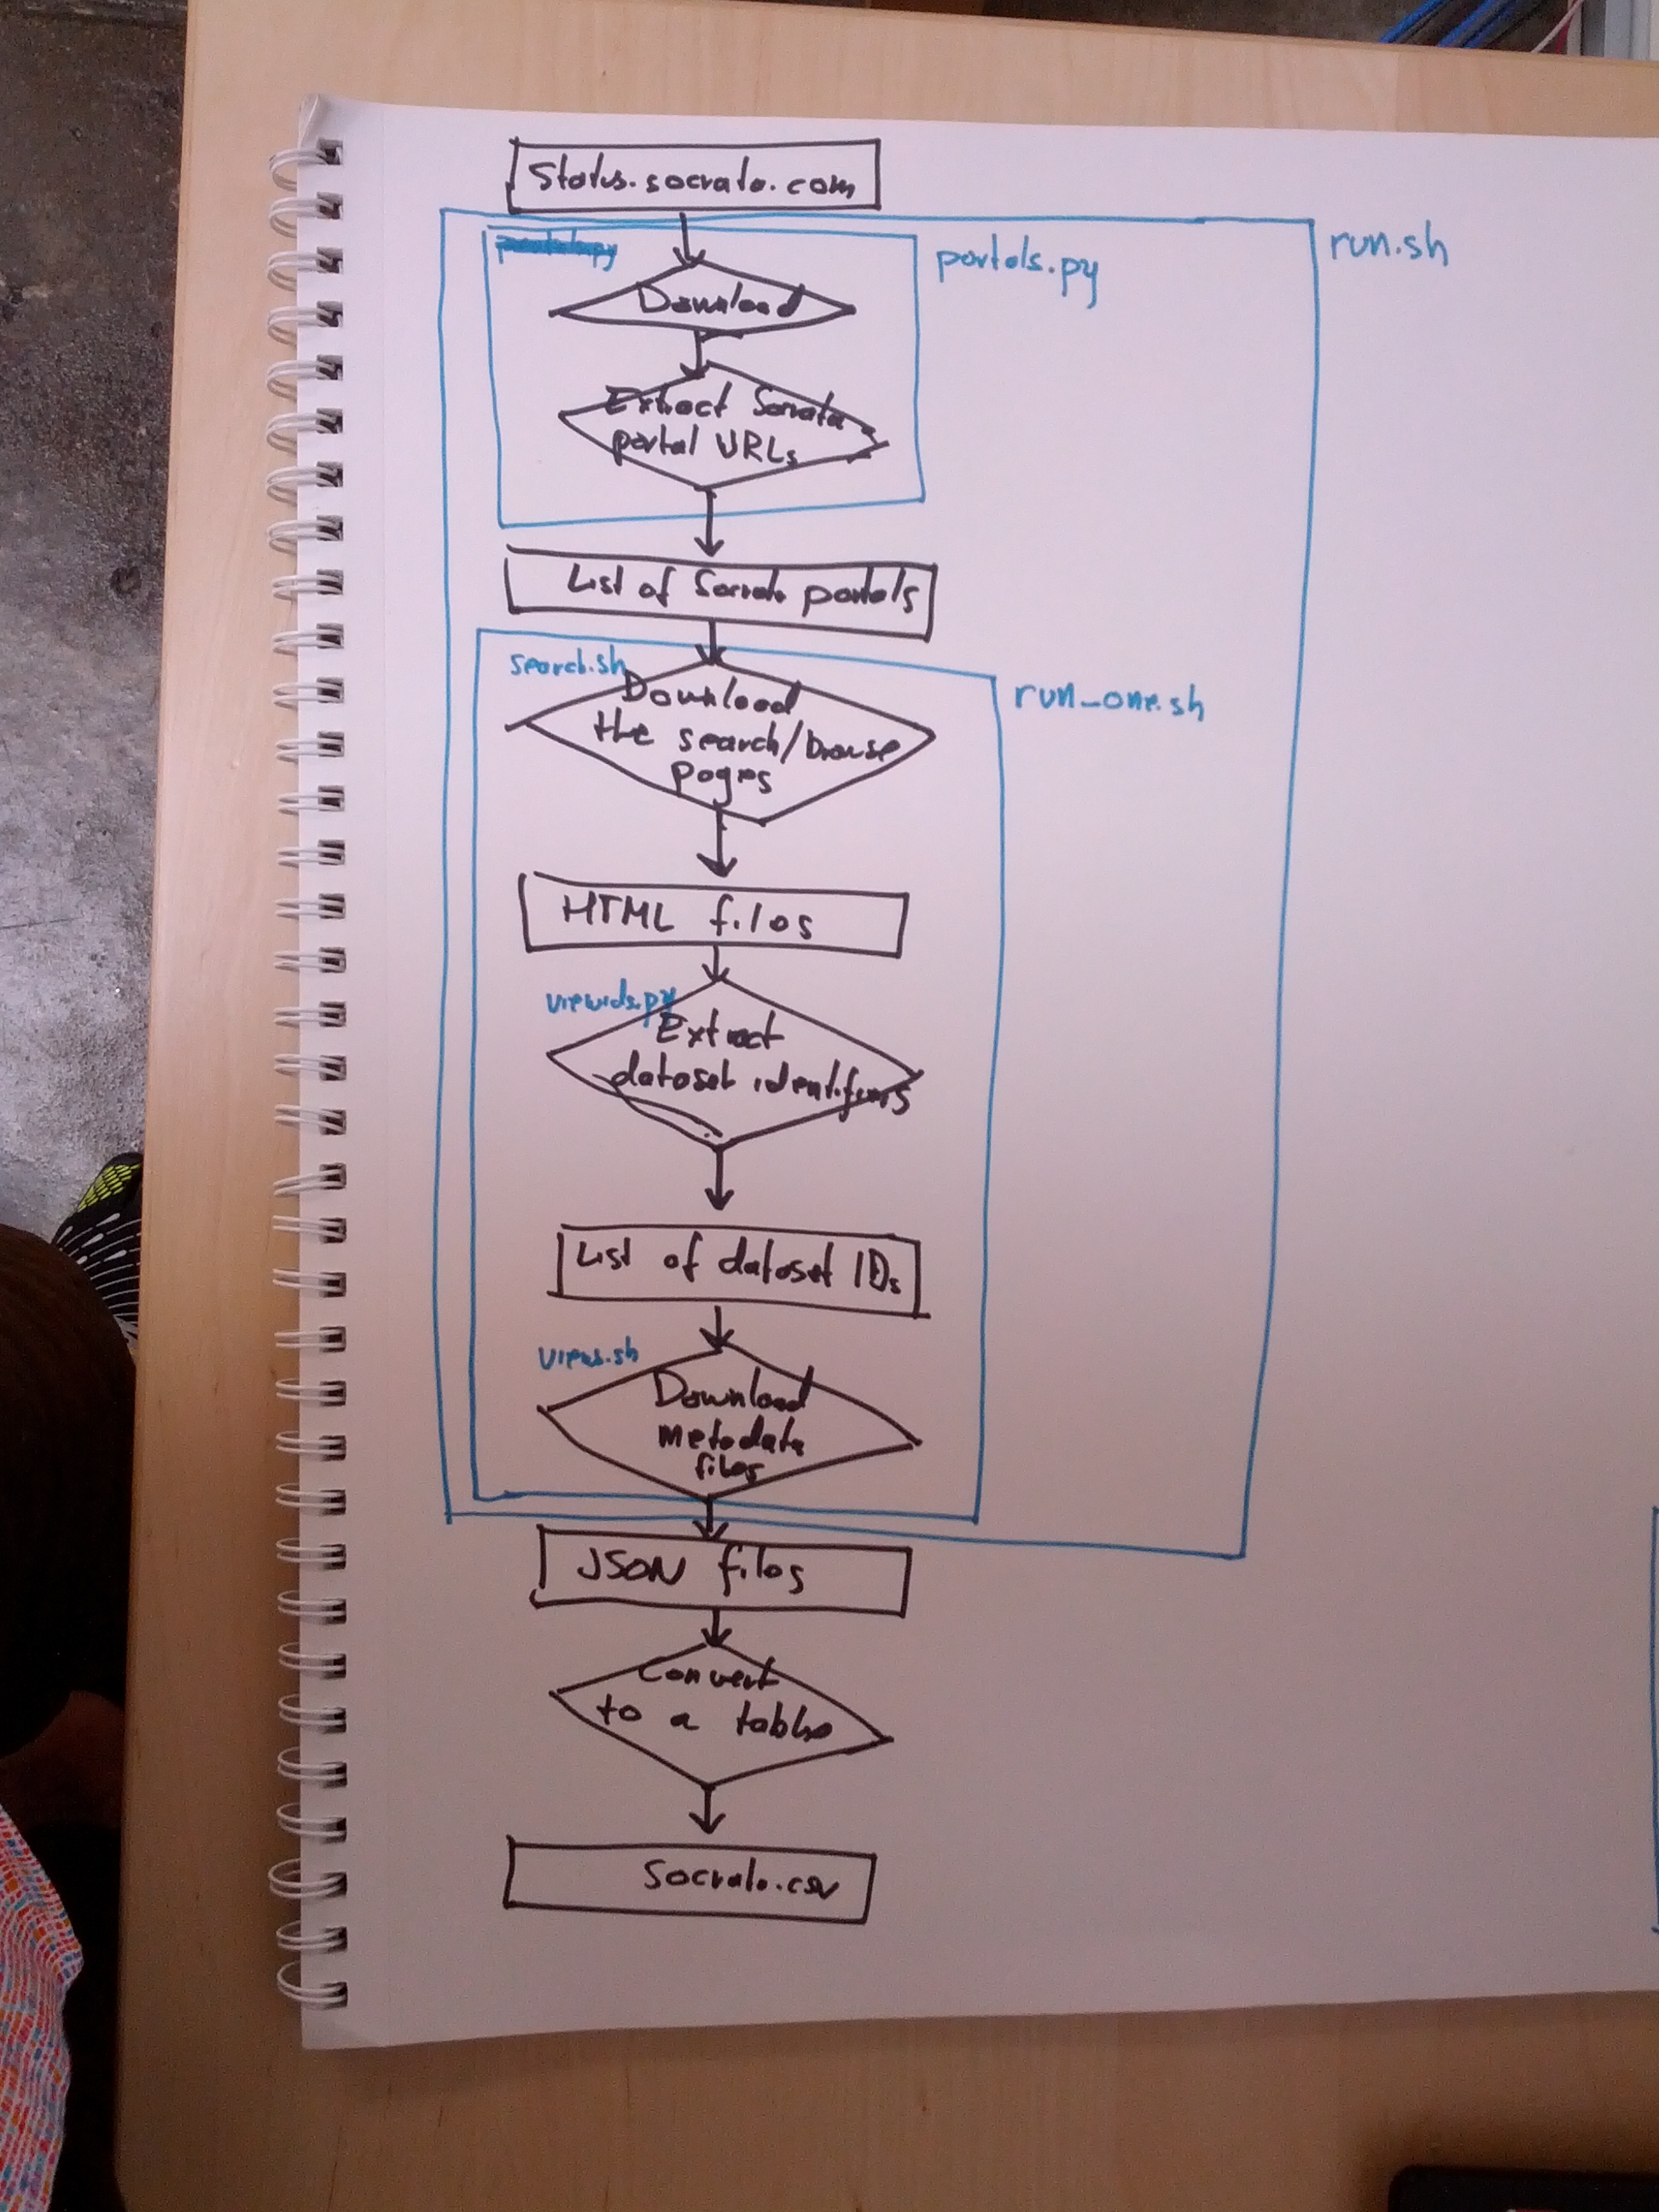 Status.socrata.com
run.sh
portals.py
Download
Extract Socrata
portal URLs
List of Socrata portals
search.sh
run_one.sh
Download
the search/browse
pages
HTML files
viewids.py
Extract
dataset identifiers
List of dataset IDs
views.sh
Download
metadata
files
JSON files
Convert
to a table
Socrata.csv